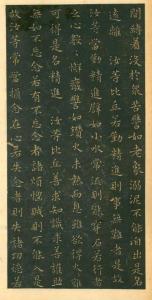 間縛著沒於衆苦譬如老象溺泥不能自出是名
遠離汝等比丘若勤精進則事無難者是故
汝等當勤精進譬如小水常流則能穿石若行者
之心數數懈廢譬如鑽火未熱而息雖欲得火火難
可得是名精進汝等比丘求善知識求善護助
無如不忘念若有不忘念者諸煩惱賊則不能入是
故汝等常當攝念在心若失念者則失諸功德若